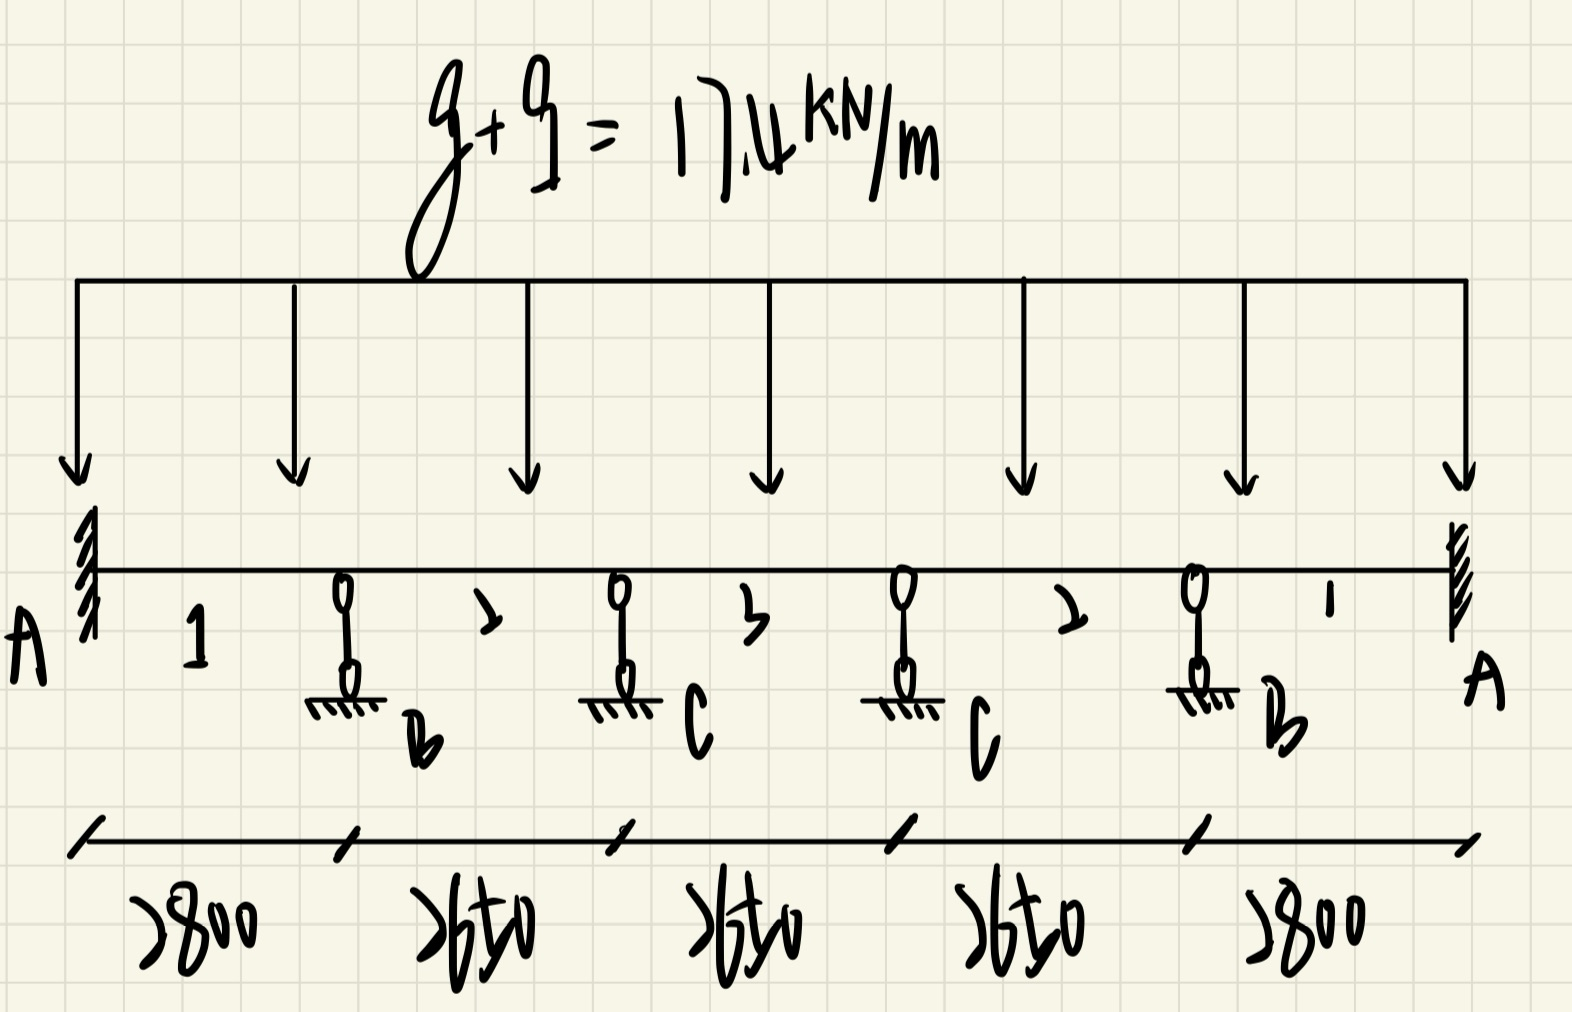 g+q=17.4 kN/m
A 1 B 2 C 3 C 2 B 1 A
2800 2650 2650 2650 2800